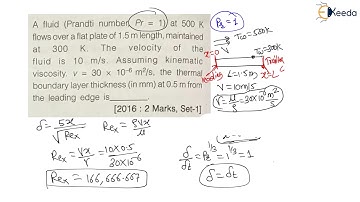 A fluid (Prandtl number, Pr = 1) at 500 K
flows over a flat plate of 1.5 m length, maintained
at 300 K. The velocity of the
fluid is 10 m/s. Assuming kinematic
viscosity, ν = 30 × 10⁻⁶ m²/s, the thermal
boundary layer thickness (in mm) at 0.5 m from
the leading edge is
[2016 : 2 Marks, Set-1]
Pr = 1
Ekeeda
x=0
V
L=1.5m
x=L
V=10m/s
δ = 5x / √Rex
Rex = ρVx / μ
Rex = Vx / ν = 10×0.5 / 30×10⁻⁶
Rex = 166,666.667
δ / δt = Pr^1/3 = 1^1/3 = 1
δ = δt